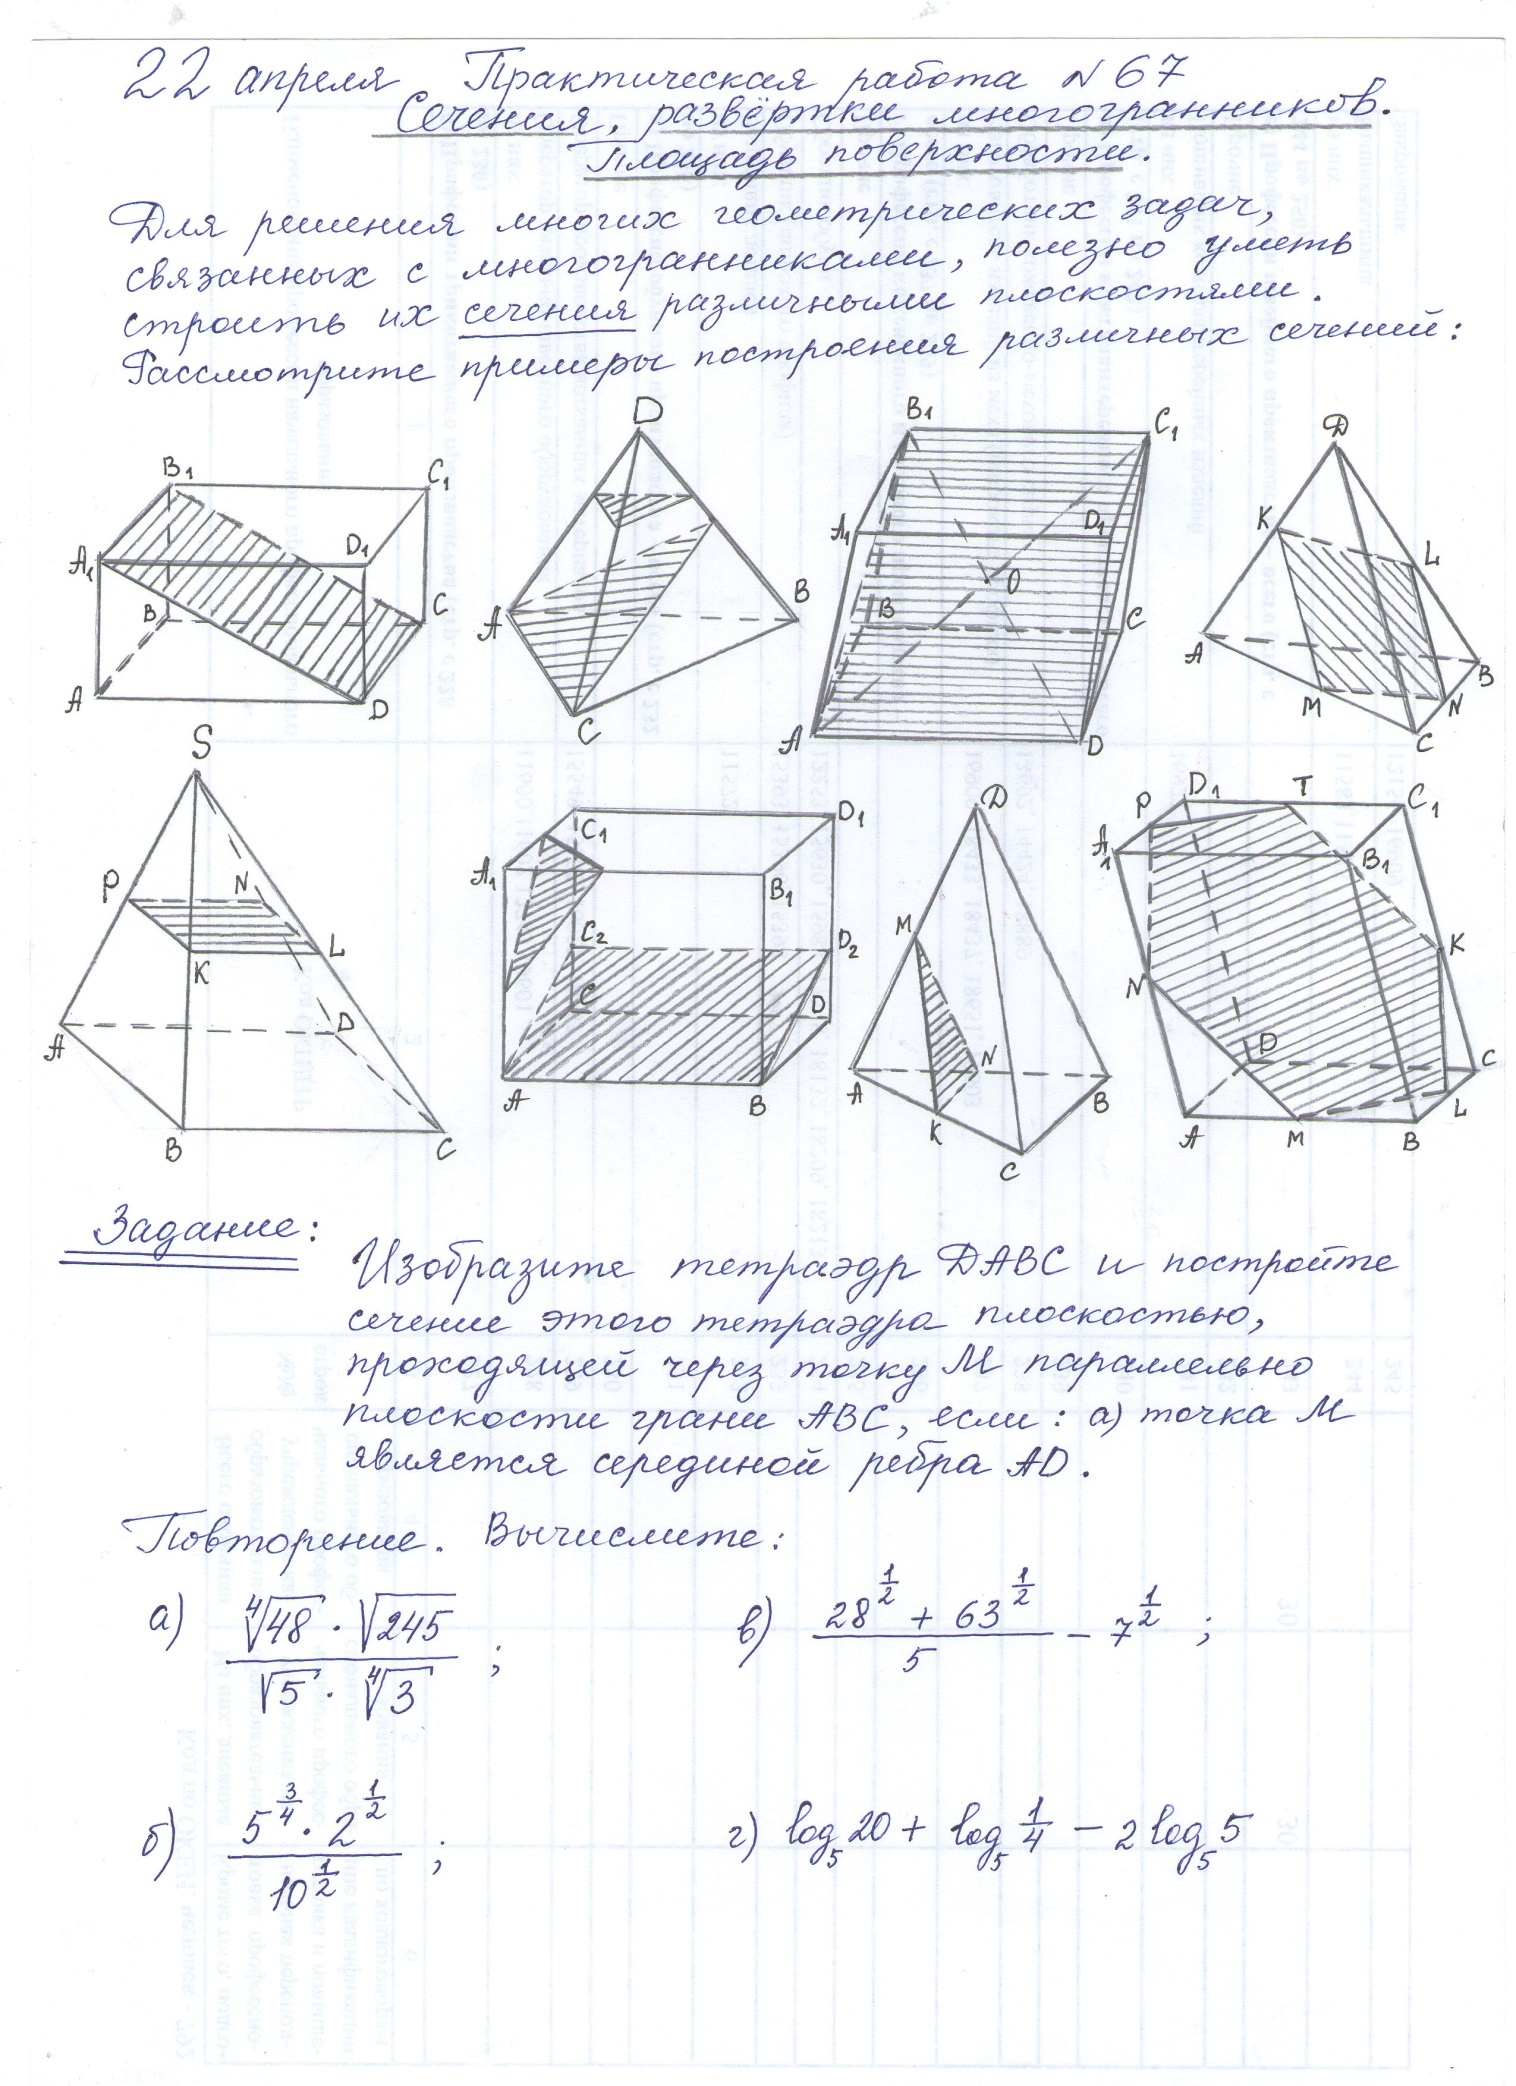 22 апреля Практическая работа № 67
Сечения, развёртки многогранников.
Площадь поверхности.
Для решения многих геометрических задач,
связанных с многогранниками, полезно уметь
строить их сечения различными плоскостями.
Рассмотрите примеры построения различных сечений:
B1 C1 A1 D1 B C A D
D A B C
B1 C1 A1 D1 O B C A D
D K L A B M N C
S P N K L A D B C
C1 D1 A1 B1 C2 D2 C D A B
D M N A B K C
P D1 T C1 A1 B1 K N D C L A M B
Задание:
Изобразите тетраэдр DABC и постройте
сечение этого тетраэдра плоскостью,
проходящей через точку М параллельно
плоскости грани ABC, если: а) точка М
является серединой ребра AD.
Повторение. Вычислите:
а) (∜48 · √245) / (√5 · ∜3) ;
в) (28^(1/2) + 63^(1/2)) / 5 − 7^(1/2) ;
б) (5^(3/4) · 2^(1/2)) / 10^(1/2) ;
г) log₅ 20 + log₅ 1/4 − 2 log₅ 5